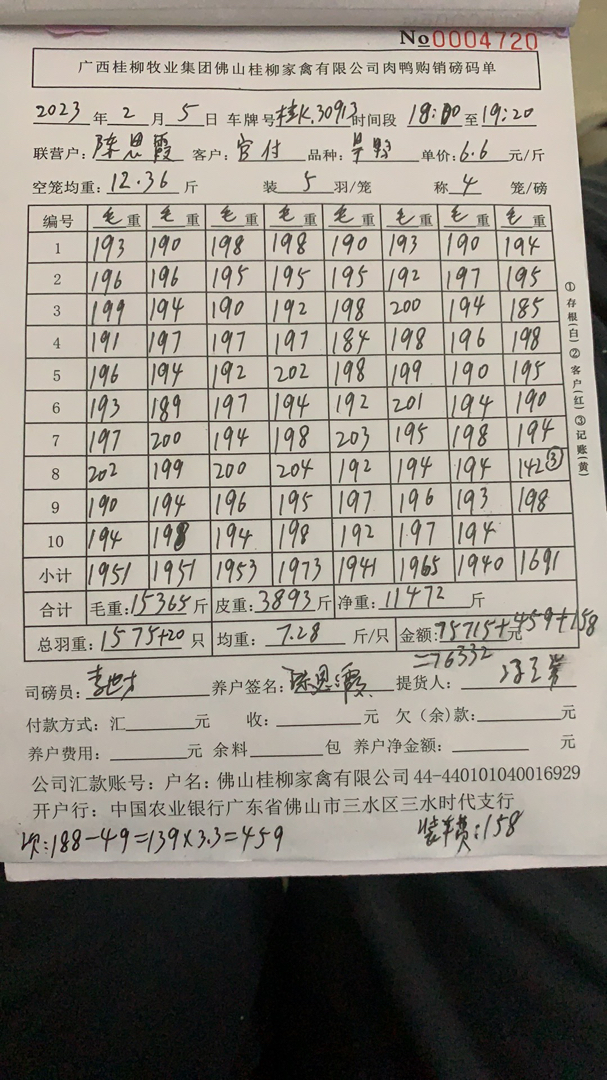 No 0004720
广西桂柳牧业集团佛山桂柳家禽有限公司肉鸭购销磅码单
2023 年 2 月 5 日 车牌号 桂K.30913 时间段 18:00 至 19:20
联营户: 陈思霞 客户: 官付 品种: 单价: 6.6 元/斤
空笼均重: 12.36 斤 装 5 羽/笼 称 4 笼/磅
编号 毛重 毛重 毛重 毛重 毛重 毛重 毛重 毛重
1 193 190 198 198 190 193 190 194
2 196 196 195 195 195 192 197 195
3 199 194 190 192 198 200 194 185
4 191 197 197 197 184 198 196 198
5 196 194 192 202 198 199 190 195
6 193 189 197 194 192 201 194 190
7 197 200 194 198 203 195 198 194
8 202 199 200 204 192 194 194 142③
9 190 194 196 195 197 196 193 198
10 194 198 194 198 192 1.97 194
小计 1951 1951 1953 1973 1941 1965 1940 1691
合计 毛重: 15365 斤 皮重: 3893 斤 净重: 11472 斤
总羽重: 1575+20 只 均重: 7.28 斤/只 金额: 75715+459+158 元
=76332
司磅员: 养户签名: 陈思霞 提货人:
付款方式: 汇 元 收: 元 欠(余)款: 元
养户费用: 元 余料 包 养户净金额: 元
公司汇款账号: 户名: 佛山桂柳家禽有限公司 44-440101040016929
开户行: 中国农业银行广东省佛山市三水区三水时代支行
次:188-49=139×3.3=459 装车费:158
①存根(白)②客户(红)③记账(黄)